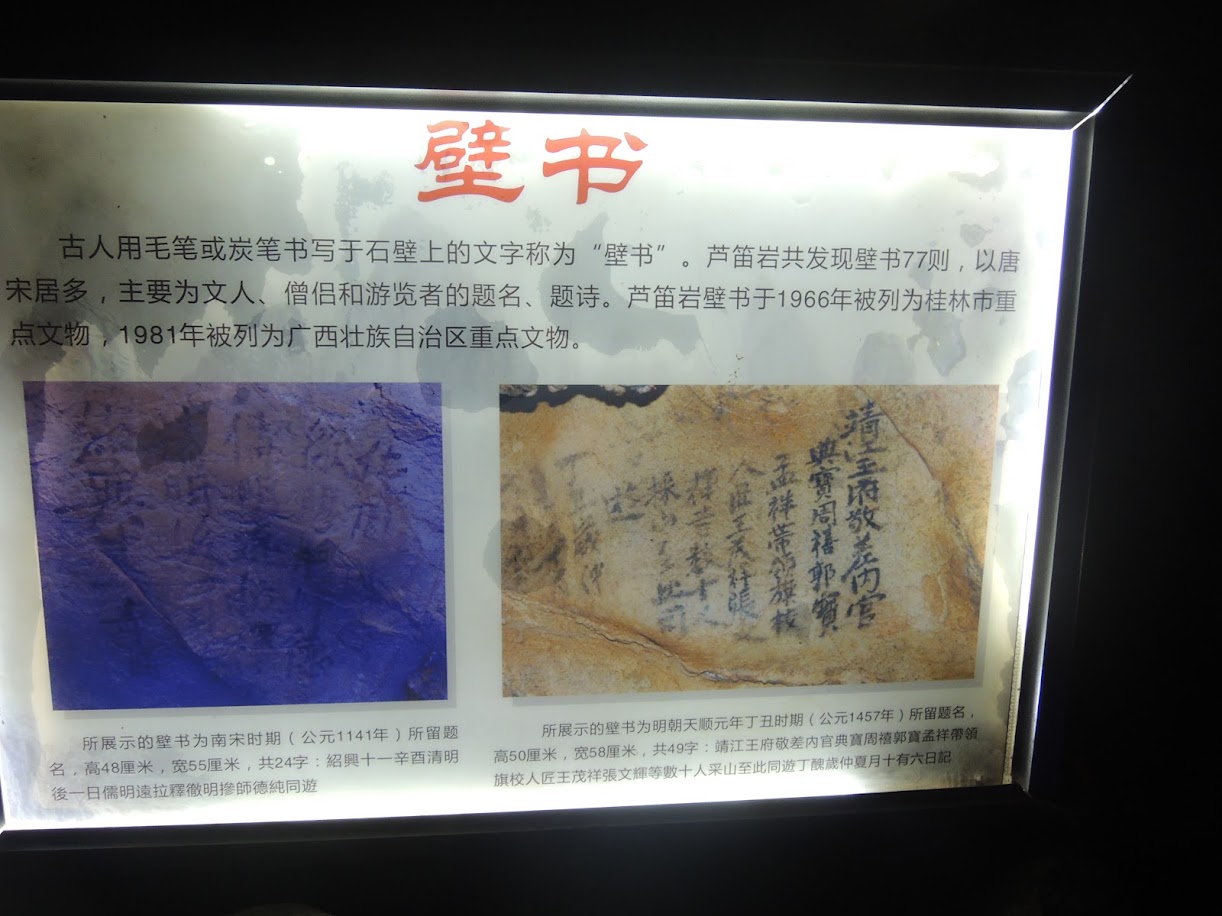 壁书
古人用毛笔或炭笔书写于石壁上的文字称为“壁书”。芦笛岩共发现壁书77则，以唐
宋居多，主要为文人、僧侣和游览者的题名、题诗。芦笛岩壁书于1966年被列为桂林市重
点文物，1981年被列为广西壮族自治区重点文物。
靖江王府敬差内官
典寶周禧郭寶
孟祥带領旗校
人匠王茂祥張
輝等數十人
採山至此同
遊
丁丑歲仲
所展示的壁书为南宋时期（公元1141年）所留题
名，高48厘米，宽55厘米，共24字：紹興十一辛酉清明
後一日儒明遠拉釋徹明摻師德純同遊
所展示的壁书为明朝天顺元年丁丑时期（公元1457年）所留题名，
高50厘米，宽58厘米，共49字：靖江王府敬差内官典寶周禧郭寶孟祥帶領
旗校人匠王茂祥張文輝等數十人采山至此同遊丁醜歲仲夏月十有六日記